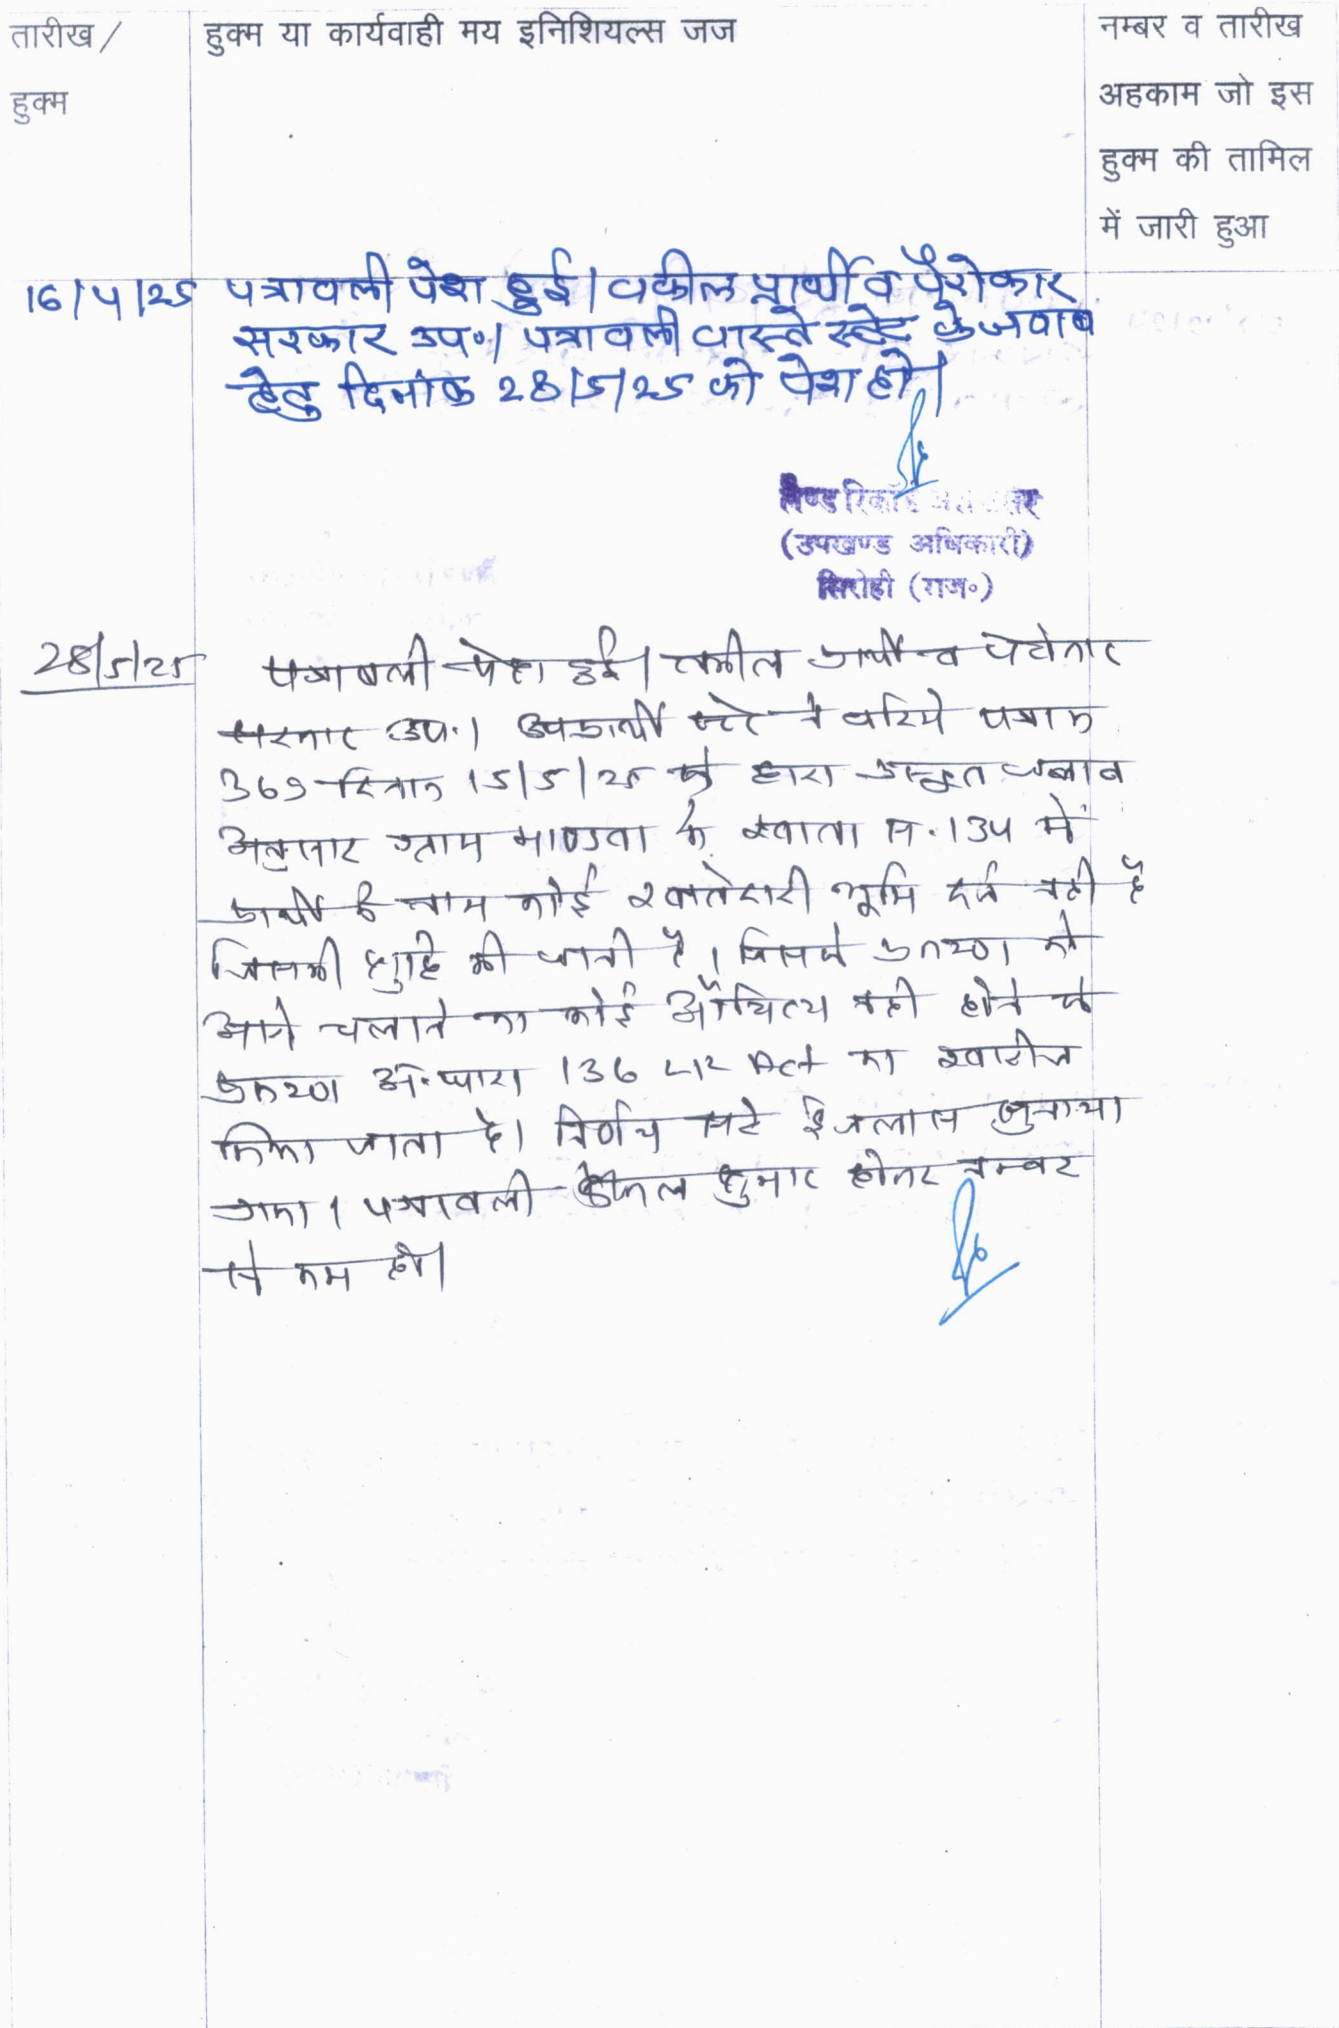 तारीख / हुक्म या कार्यवाही मय इनिशियल्स जज नम्बर व तारीख
हुक्म अहकाम जो इस
हुक्म की तामिल
में जारी हुआ
16/4/25 पत्रावली पेश हुई। वकील प्रार्थी व पैरोकार
सरकार उप०। पत्रावली वास्ते स्टेट के जवाब
हेतु दिनांक 28/5/25 को पेश हो।
लैण्ड रिकॉर्ड
(उपखण्ड अधिकारी)
सिरोही (राज०)
28/5/25 पत्रावली पेश हुई। वकील प्रार्थी व पेरोकार
सरकार उप.। उपप्रार्थी ने जरिये पत्रांक
369 दिनांक 15/5/25 के द्वारा प्रस्तुत जवाब
अनुसार ग्राम माण्डवा के खाता स. 134 में
प्रार्थी के नाम कोई खातेदारी भूमि दर्ज नही है
जिसकी शुद्धि की जानी है। जिससे प्रकरण को
आगे चलाने का कोई औचित्य नही होने से
प्रकरण अ.धारा 136 LR Act का खारीज
किया जाता है। निर्णय सरे इजलास सुनाया
गया। पत्रावली फैसल शुमार होकर नम्बर
से कम हो।